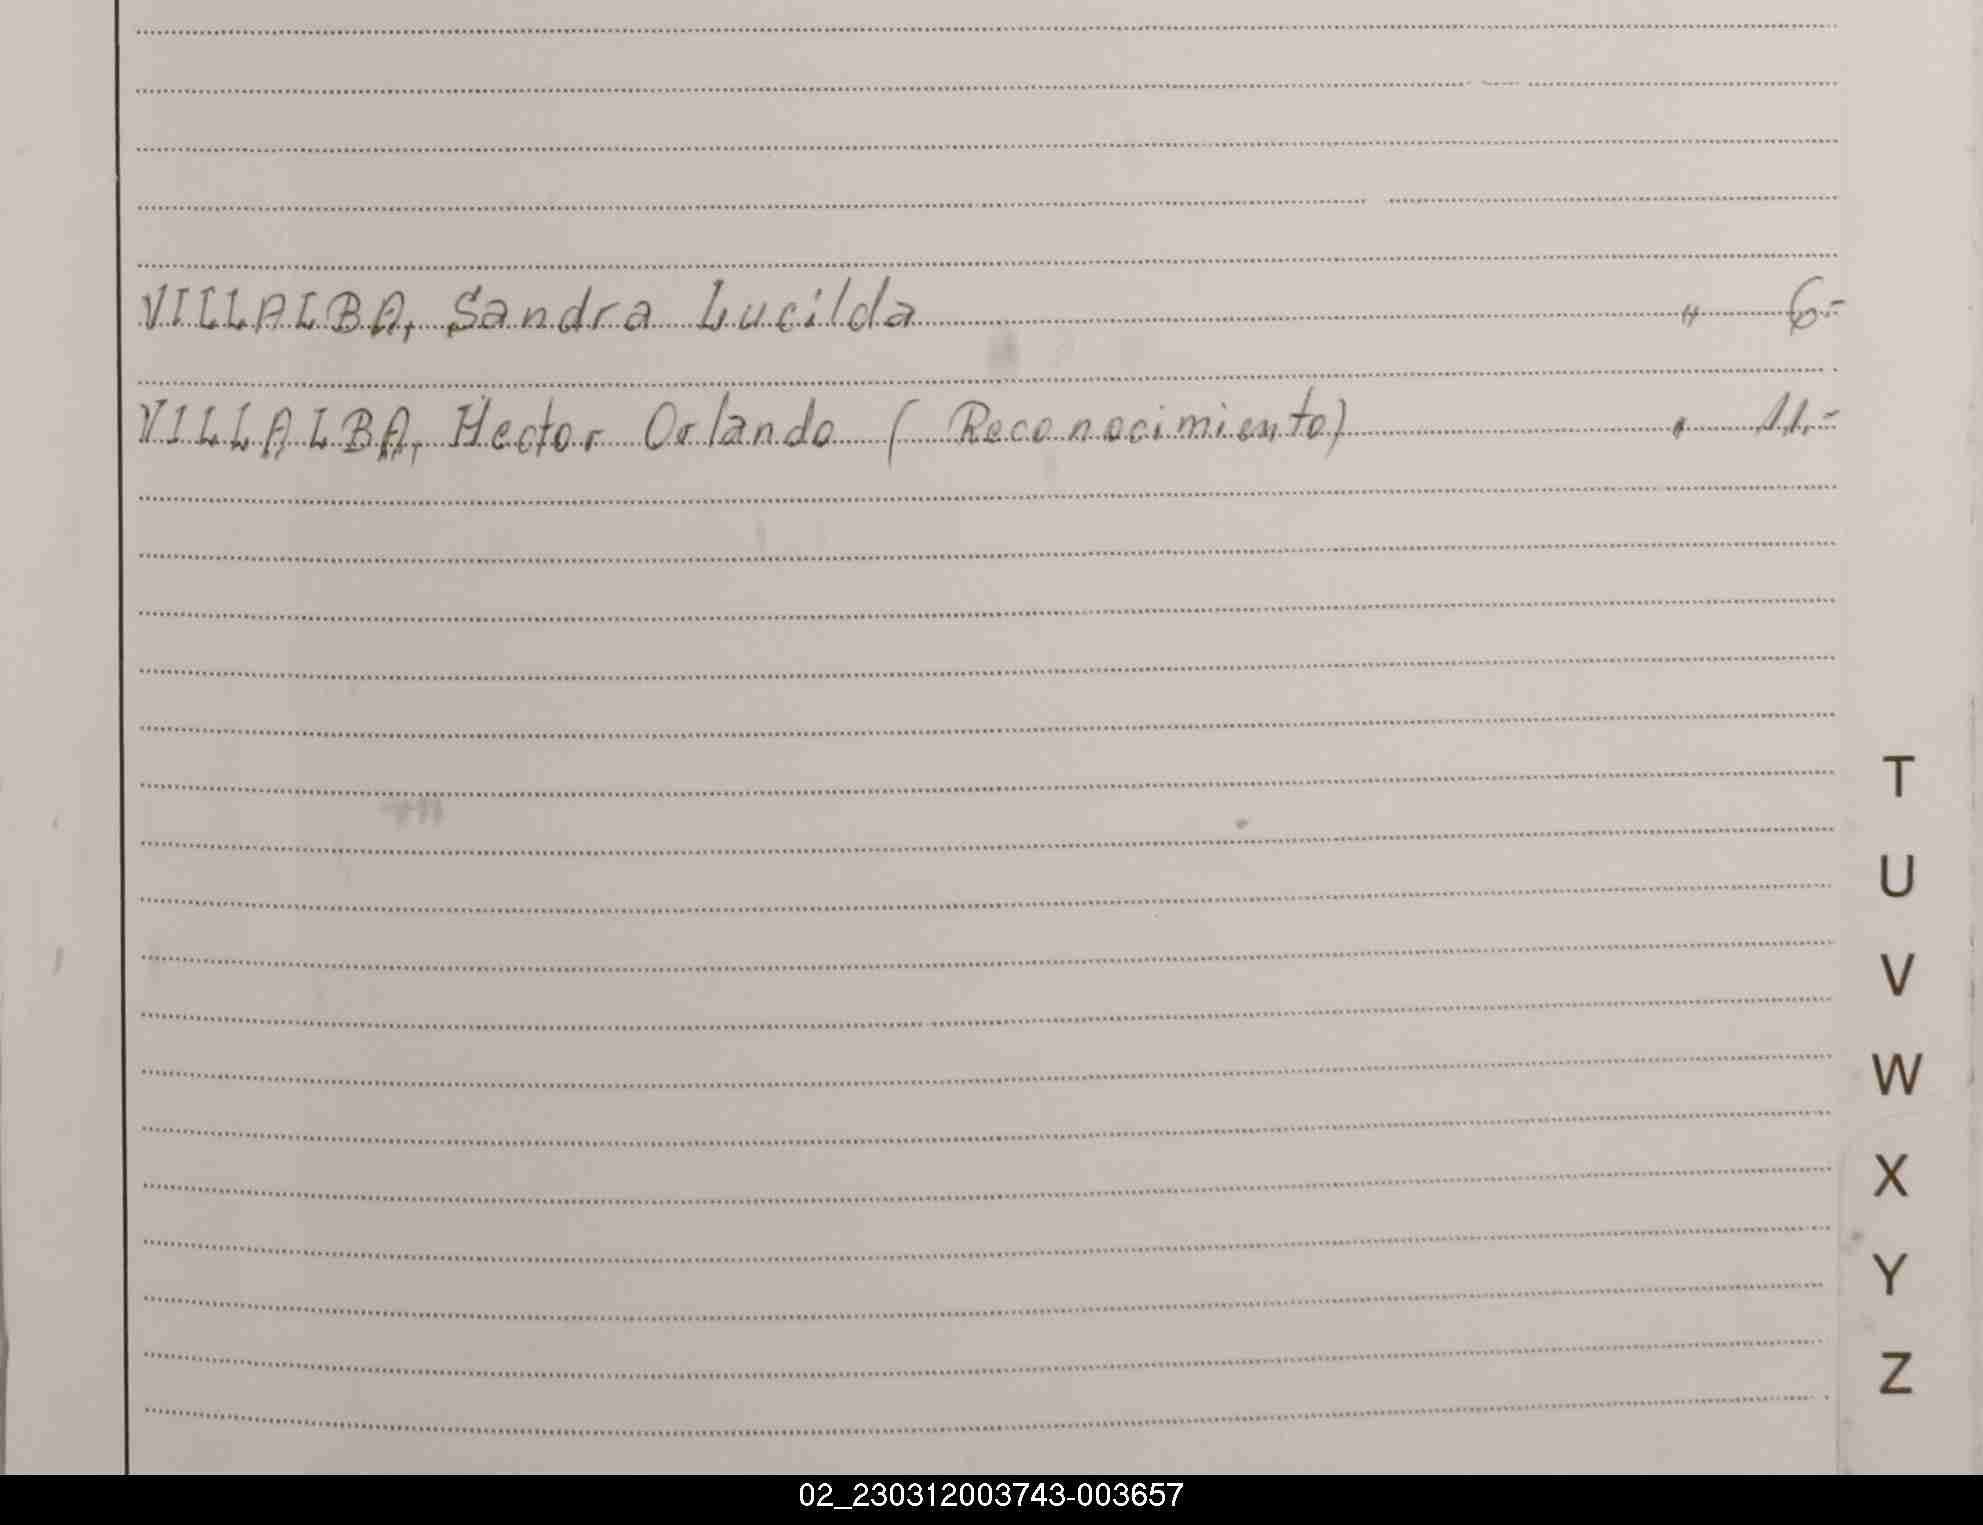 VILLALBA, Sandra Lucilda " 6-
VILLALBA, Hector Orlando (Reconocimiento) " 11.-
T
U
V
W
X
Y
Z
02_230312003743-003657